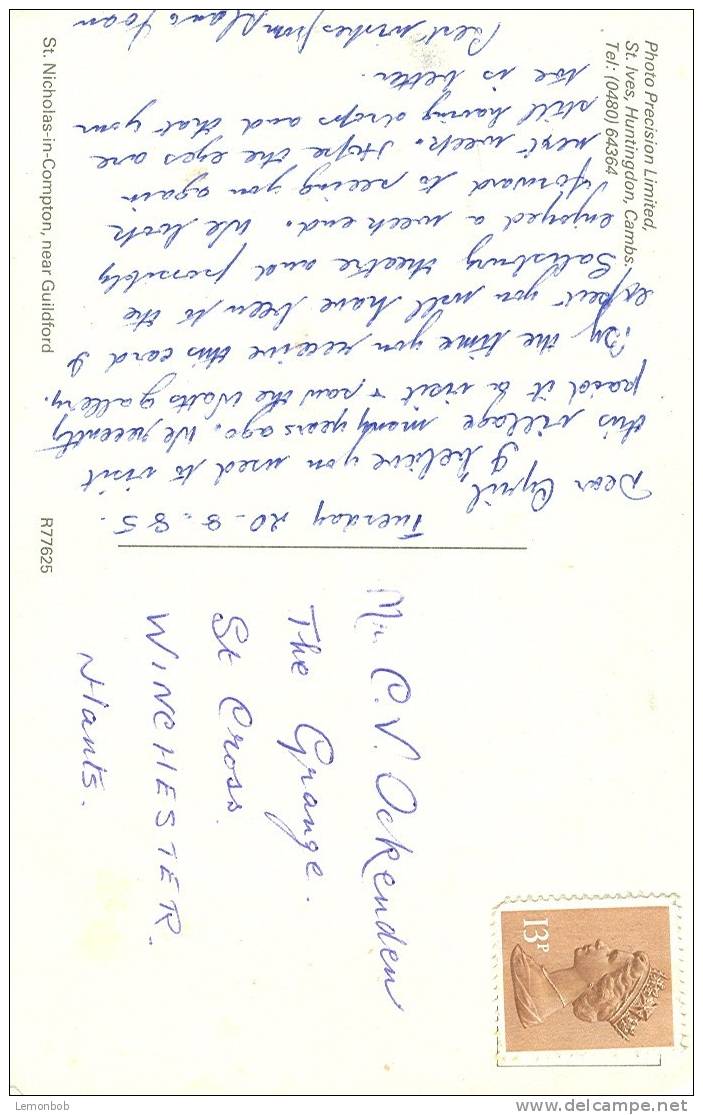 Photo Precision Limited,
St. Ives, Huntingdon, Cambs.
Tel: (0480) 64364
Tuesday 20-8-85.
Dear Cyril
I believe you used to visit
this village many years ago. We recently
paid it a visit & saw the Watts gallery.
By the time you receive this card I
expect you will have been to the
Salisbury theatre and possibly
enjoyed a week end. We look
forward to seeing you again
next week. Hope the eyes are
still having drops and that your
toe is better.
Best wishes from Joan
St. Nicholas-in-Compton, near Guildford
R77625
13P
Mr. C.V. Ockenden
The Grange.
St Cross.
WINCHESTER.
Hants.
Lemonbob
www.delcampe.net